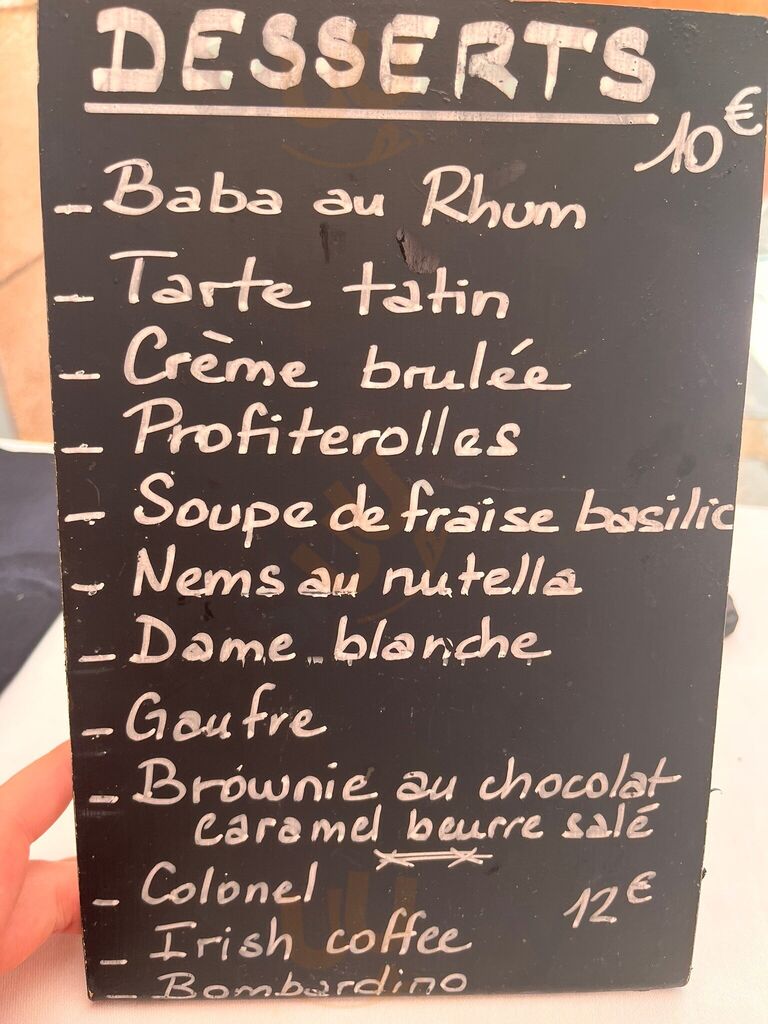 DESSERTS
10€
- Baba au Rhum
- Tarte tatin
- Crème brulée
- Profiterolles
- Soupe de fraise basilic
- Nems au nutella
- Dame blanche
- Gaufre
- Brownie au chocolat
caramel beurre salé
- Colonel 12€
- Irish coffee
- Bombardino